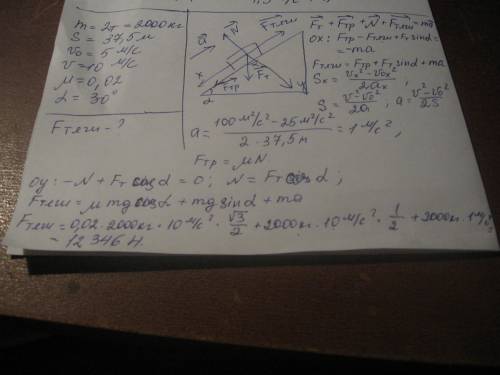 m = 2т = 2000кг
S = 37,5 м
v₀ = 5 м/с
v = 10 м/с
μ = 0,02
α = 30°
Fтяги - ?
N Fтяги
a
x Fтр Fт y
α
Fт + Fтр + N + Fтяги = ma
ох: Fтр - Fтяги + Fт sinα =
= -ma
Fтяги = Fтр + Fт sinα + ma
Sx = (vx² - v₀x²)/2ax
S = (v² - v₀²)/2a ; a = (v² - v₀²)/2S
a = (100 м²/с² - 25 м²/с²)/(2 · 37,5 м) = 1 м/с² ,
Fтр = μN
оу: -N + Fт cosα = 0 ; N = Fт cosα ;
Fтяги = μ mg cosα + mg sinα + ma
Fтяги = 0,02 · 2000кг · 10 м/с² · √3/2 + 2000кг · 10 м/с² · 1/2 + 2000кг · 1 м/с²
= 12346 Н.